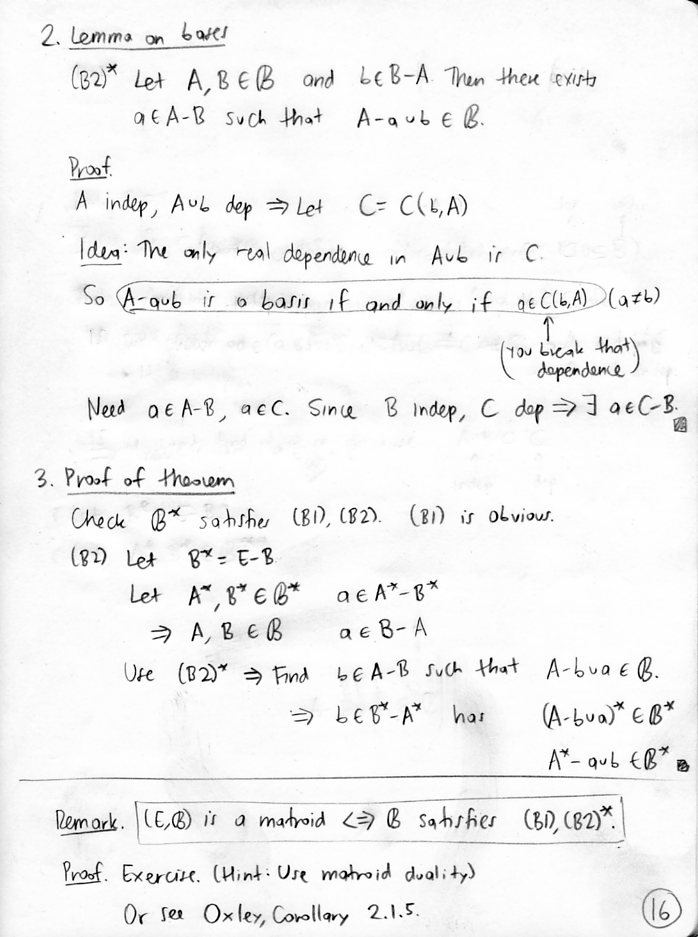 2. Lemma on bases
(B2)* Let A, B ∈ ℬ and b ∈ B-A. Then there exists
a ∈ A-B such that A-a∪b ∈ ℬ.
Proof.
A indep, A∪b dep ⇒ Let C = C(b,A)
Idea: The only real dependence in A∪b is C.
So A-a∪b is a basis if and only if a ∈ C(b,A) (a≠b)
(you break that
dependence)
Need a ∈ A-B, a ∈ C. Since B indep, C dep ⇒ ∃ a ∈ C-B.
3. Proof of theorem
Check ℬ* satisfies (B1), (B2). (B1) is obvious.
(B2) Let B* = E-B
Let A*, B* ∈ ℬ* a ∈ A*-B*
⇒ A, B ∈ ℬ a ∈ B-A
Use (B2)* ⇒ Find b ∈ A-B such that A-b∪a ∈ ℬ.
⇒ b ∈ B*-A* has (A-b∪a)* ∈ ℬ*
A*-a∪b ∈ ℬ*
Remark. (E,ℬ) is a matroid ⇔ ℬ satisfies (B1), (B2)*.
Proof. Exercise. (Hint: Use matroid duality)
Or see Oxley, Corollary 2.1.5.
16